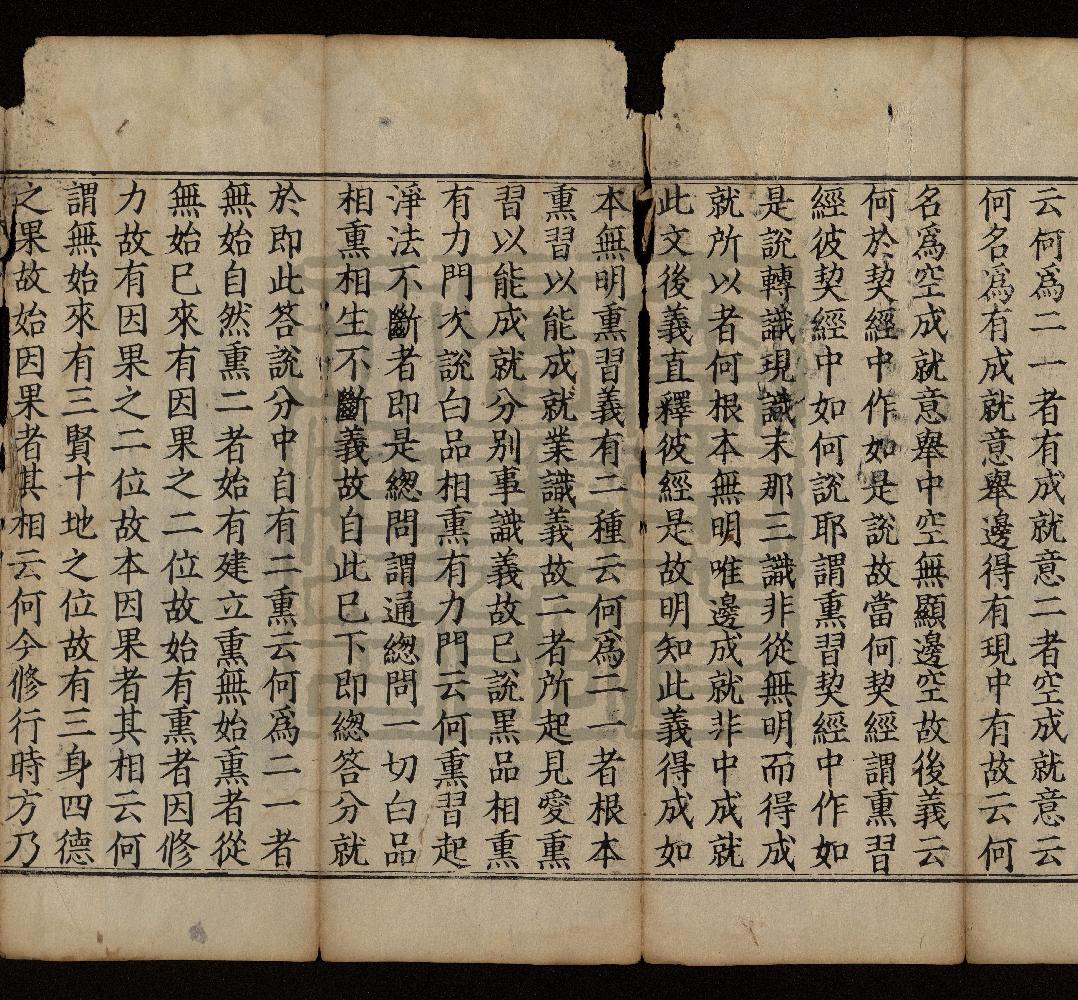 云何爲二一者有成就意二者空成就意云
何名爲有成就意舉邊得有現中有故云何
名爲空成就意舉中空無顯邊空故後義云
何於契經中作如是說故當何契經謂熏習
經彼契經中如何說耶謂熏習契經中作如
是說轉識現識末那三識非從無明而得成
就所以者何根本無明唯邊成就非中成就
此文後義直釋彼經是故明知此義得成如
本無明熏習義有二種云何爲二一者根本
熏習以能成就業識義故二者所起見愛熏
習以能成就分別事識義故已說黑品相熏
有力門次說白品相熏有力門云何熏習起
淨法不斷者即是緫問謂通緫問一切白品
相熏相生不斷義故自此已下即緫答分就
於即此答說分中自有二熏云何爲二一者
無始自然熏二者始有建立熏無始熏者從
無始已來有因果之二位故始有熏者因修
力故有因果之二位故本因果者其相云何
謂無始來有三賢十地之位故有三身四德
之果故始因果者其相云何今修行時方乃